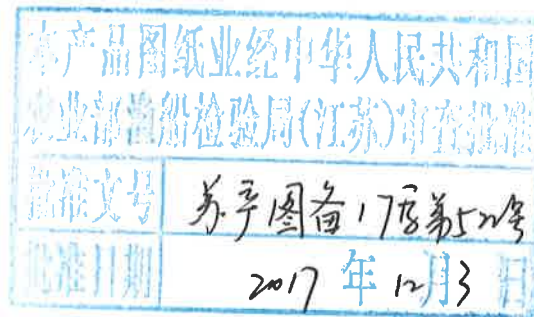 本产品图纸业经中华人民共和国
农业部渔船检验局(江苏)审查批准
批准文号 苏 图备17 第52号
批准日期 2017年12月3日